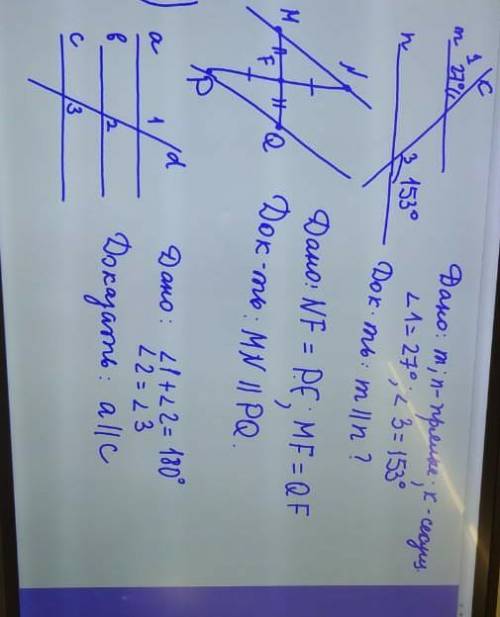 m 1 c
27°
n 3 153°
Дано: m; n-прямые, к-секущ.
∠1=27°; ∠3=153°
Док-ть: m || n?
M N
F
P Q
Дано: NF = PF; MF = QF
Док-ть: MN || PQ.
a 1 d
в 2
c 3
Дано: ∠1+∠2=180°
∠2=∠3
Доказать: a || c